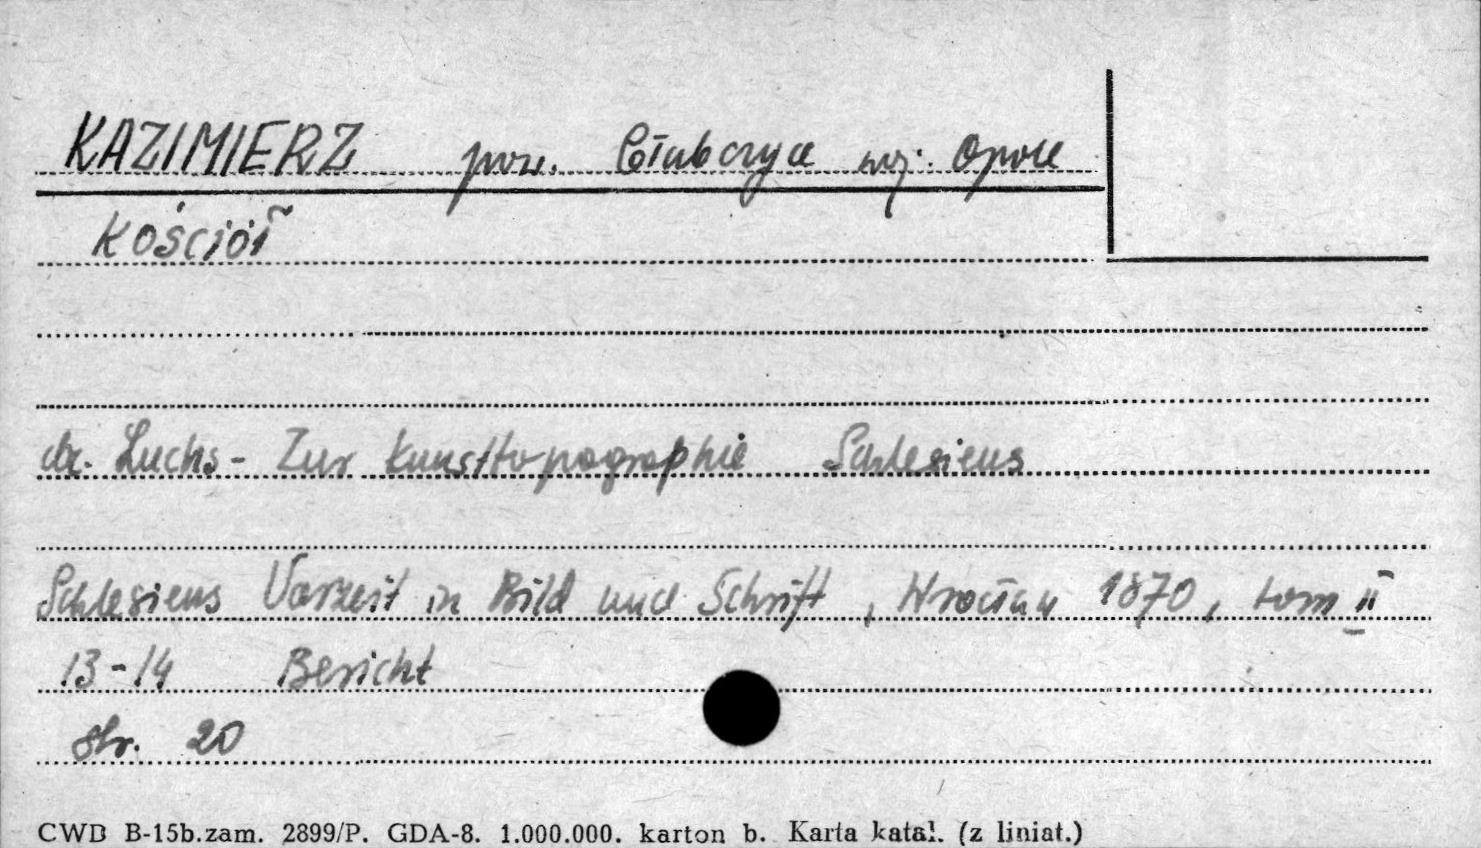 KAZIMIERZ pow. Głubczyce woj. Opole
Kościół
dr. Luchs - Zur Kunsttopographie Schlesiens
Schlesiens Vorzeit in Bild und Schrift, Wrocław 1870, tom II
13-14 Bericht
str. 20
CWD B-15b.zam. 2899/P. GDA-8. 1.000.000. karton b. Karta katal. (z liniat.)